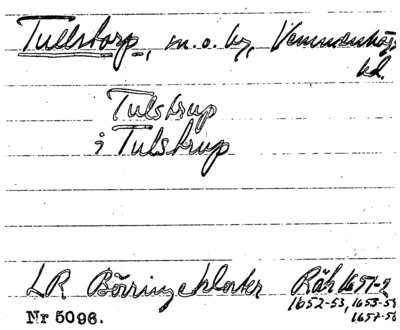 Tullstorp, s. o. by, Vemmenhögs
hd.
Tulstrup
i Tulstrup
LR Börringekloster Räk 1651-2
1652-53, 1653-54
Nr 5096. 1657-58